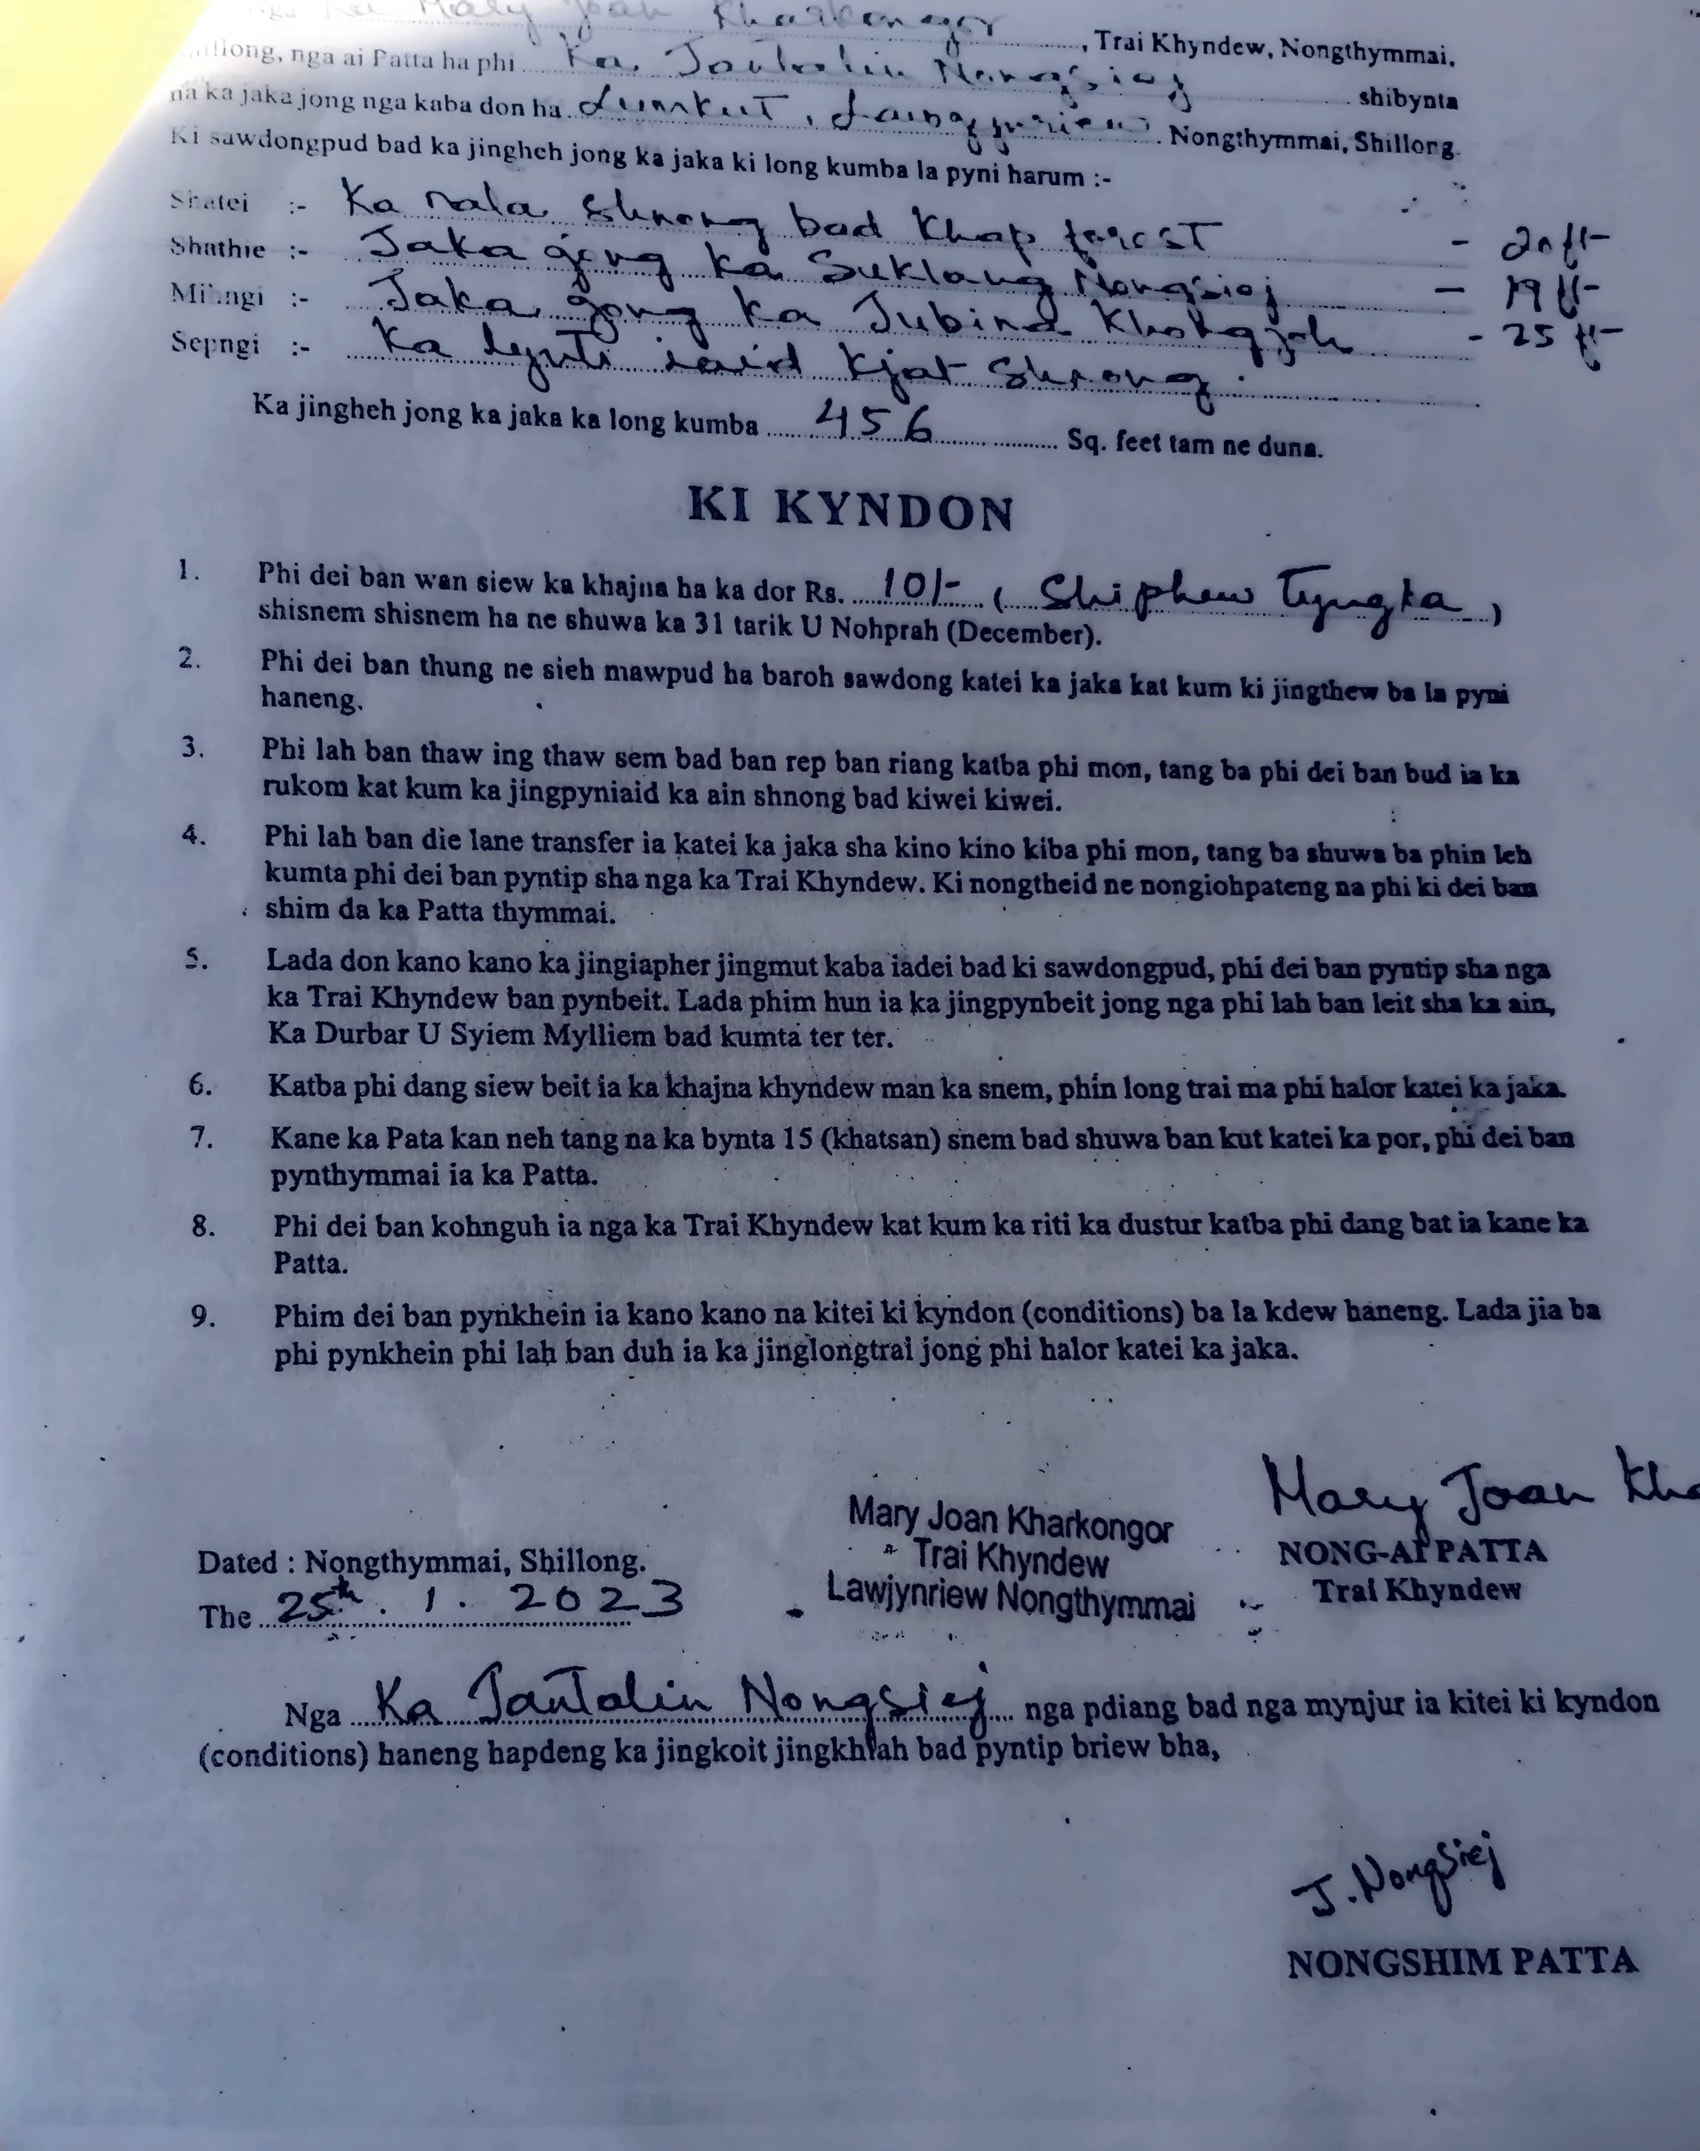 Nga Ka Mary Joan Kharkongor, Trai Khyndew, Nongthymmai,
Shillong, nga ai Patta ha phi Ka Jantalin Nongsiej
na ka jaka jong nga kaba don ha Lumkut, shibynta
Nongthymmai, Shillong.
Ki sawdongpud bad ka jingheh jong ka jaka ki long kumba la pyni harum :-
Shatei :- Ka nala shnong bad Khap forest - 20 ft
Shathie :- Jaka jong ka Suklang Nongsiej - 19 ft
Mihngi :- Jaka jong ka Jubina Khongjoh - 25 ft
Sepngi :- Ka lynti iaid kjat shnong.
Ka jingheh jong ka jaka ka long kumba 456 Sq. feet tam ne duna.
KI KYNDON
1. Phi dei ban wan siew ka khajna ha ka dor Rs. 10/- (Shiphew Tyngka)
shisnem shisnem ha ne shuwa ka 31 tarik U Nohprah (December).
2. Phi dei ban thung ne sieh mawpud ha baroh sawdong katei ka jaka kat kum ki jingthew ba la pyni
haneng.
3. Phi lah ban thaw ing thaw sem bad ban rep ban riang katba phi mon, tang ba phi dei ban bud ia ka
rukom kat kum ka jingpyniaid ka ain shnong bad kiwei kiwei.
4. Phi lah ban die lane transfer ia katei ka jaka sha kino kino kiba phi mon, tang ba shuwa ba phin leh
kumta phi dei ban pyntip sha nga ka Trai Khyndew. Ki nongtheid ne nongiohpateng na phi ki dei ban
shim da ka Patta thymmai.
5. Lada don kano kano ka jingiapher jingmut kaba iadei bad ki sawdongpud, phi dei ban pyntip sha nga
ka Trai Khyndew ban pynbeit. Lada phim hun ia ka jingpynbeit jong nga phi lah ban leit sha ka ain,
Ka Durbar U Syiem Mylliem bad kumta ter ter.
6. Katba phi dang siew beit ia ka khajna khyndew man ka snem, phin long trai ma phi halor katei ka jaka.
7. Kane ka Pata kan neh tang na ka bynta 15 (khatsan) snem bad shuwa ban kut katei ka por, phi dei ban
pynthymmai ia ka Patta.
8. Phi dei ban kohnguh ia nga ka Trai Khyndew kat kum ka riti ka dustur katba phi dang bat ia kane ka
Patta.
9. Phim dei ban pynkhein ia kano kano na kitei ki kyndon (conditions) ba la kdew haneng. Lada jia ba
phi pynkhein phi lah ban duh ia ka jinglongtrai jong phi halor katei ka jaka.
Mary Joan
Mary Joan Kharkongor
Trai Khyndew
Lawjynriew Nongthymmai
NONG-AI PATTA
Trai Khyndew
Dated : Nongthymmai, Shillong.
The 25th. 1. 2023
Nga Ka Jantalin Nongsiej nga pdiang bad nga mynjur ia kitei ki kyndon
(conditions) haneng hapdeng ka jingkoit jingkhlah bad pyntip briew bha,
J. Nongsiej
NONGSHIM PATTA